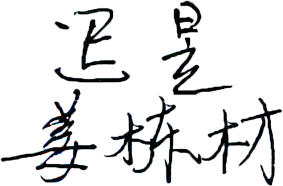 迟是
姜栋材